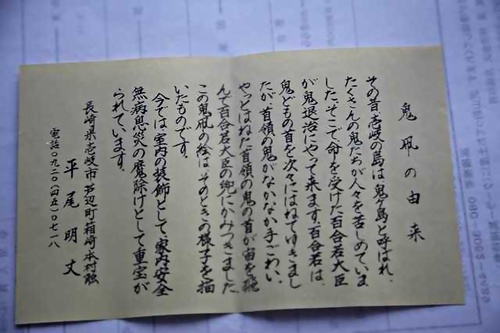 鬼凧の由来
その昔壱岐の島は鬼ヶ島と呼ばれ、
たくさんの鬼たちが人々を苦しめていま
した。そこで命を受けた百合若大臣
が鬼退治にやって来ます。百合若は、
鬼どもの首を次々にはねてゆきまし
たが、首領の鬼がなかなか手ごわい。
やっとはねた首領の鬼の首が宙を飛
んで百合若大臣の兜にかみつきました
この鬼凧の絵は、そのときの様子を描
いたものです。
今では室内の装飾として、家内安全
無病息災の魔除けとして重宝が
られています。
長崎県壱岐市芦辺町箱崎本村触
平尾明丈
電話〇九二〇(四五)〇七一八